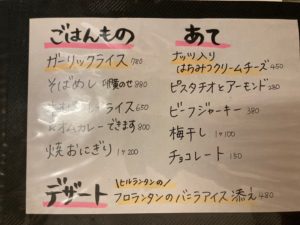 ごはんもの
ガーリックライス 780
そばめし 卵黄のせ 980
ライス 650
オムカレー できます 800
焼おにぎり 1ヶ 200
あて
ナッツ入り
はちみつクリームチーズ 450
ピスタチオとアーモンド 280
ビーフジャーキー 380
梅干し 1ヶ 100
チョコレート 150
デザート
\ヒルランタンの/
フロランタンのバニラアイス添え 480